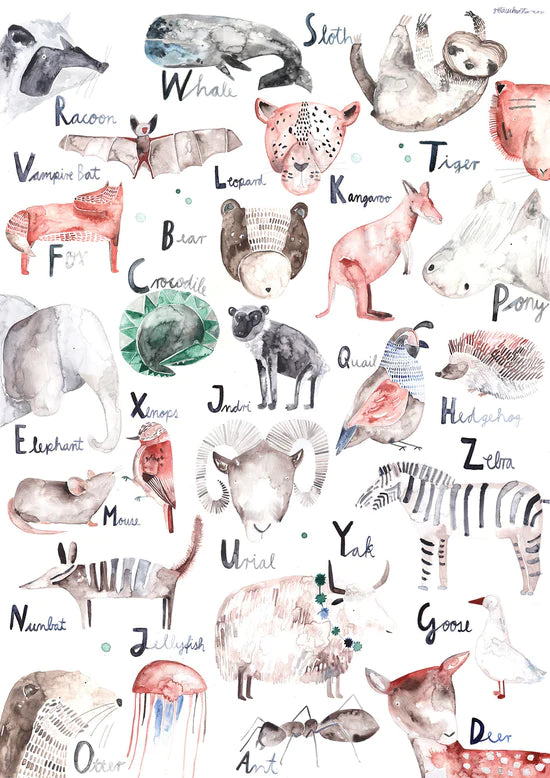 Sloth
Whale
Racoon
Tiger
Vampire Bat
Leopard
Kangaroo
Fox
Bear
Crocodile
Pony
Quail
Xenops
Indri
Hedgehog
Elephant
Zebra
Mouse
Urial
Yak
Nunbat
Jellyfish
Goose
Otter
Ant
Deer